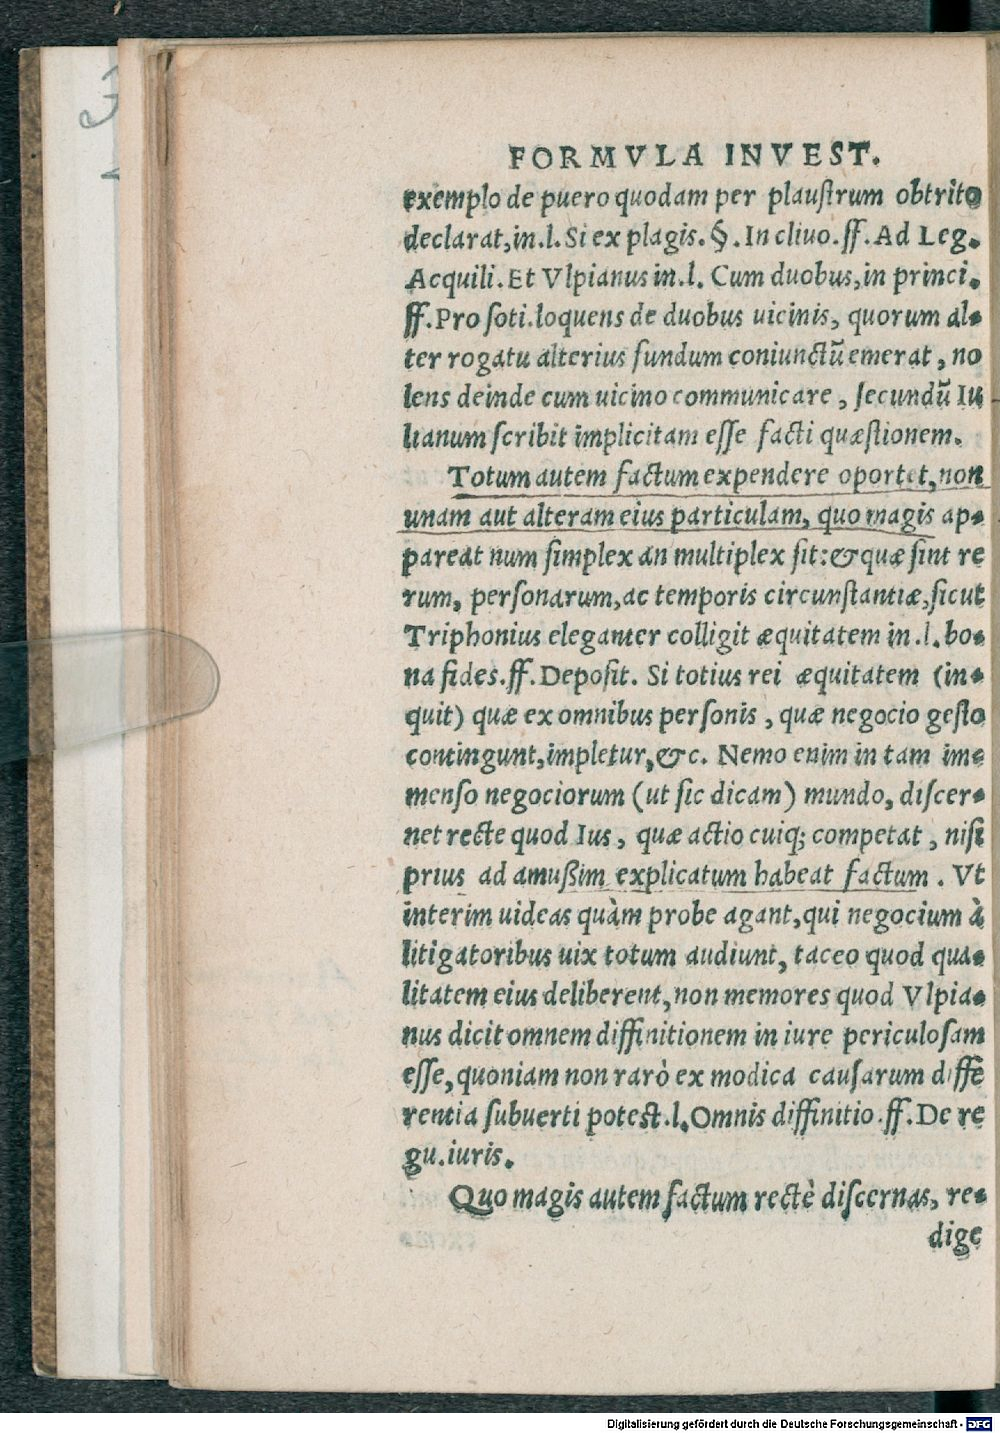 FORMVLA INVEST.
exemplo de puero quodam per plauſtrum obtrito
declarat, in.l. Si ex plagis. §. In cliuo. ff. Ad Leg.
Acquili. Et Vlpianus in.l. Cum duobus, in princi.
ff. Pro ſoti. loquens de duobus uicinis, quorum al-
ter rogatu alterius fundum coniunctũ emerat, no
lens deinde cum uicino communicare, ſecundũ Iu
lianum ſcribit implicitam eſſe facti quæſtionem.
Totum autem factum expendere oportet, non
unam aut alteram eius particulam, quo magis ap-
pareat num ſimplex an multiplex ſit: & quæ ſint re
rum, perſonarum, ac temporis circunſtantiæ, ſicut
Triphonius eleganter colligit æquitatem in.l. bo-
na fides. ff. Depoſit. Si totius rei æquitatem (in-
quit) quæ ex omnibus perſonis, quæ negocio geſto
contingunt, impletur, &c. Nemo enim in tam im-
menſo negociorum (ut ſic dicam) mundo, diſcer-
net recte quod Ius, quæ actio cuiq; competat, niſi
prius ad amußim explicatum habeat factum. Vt
interim uideas quàm probe agant, qui negocium à
litigatoribus uix totum audiunt, taceo quod qua-
litatem eius deliberent, non memores quod Vlpia-
nus dicit omnem diffinitionem in iure periculoſam
eſſe, quoniam non rarò ex modica cauſarum diffe
rentia ſubuerti poteſt.l. Omnis diffinitio. ff. De re
gu. iuris.
Quo magis autem factum rectè diſcernas, re-
dige
Digitalisierung gefördert durch die Deutsche Forschungsgemeinschaft - DFG